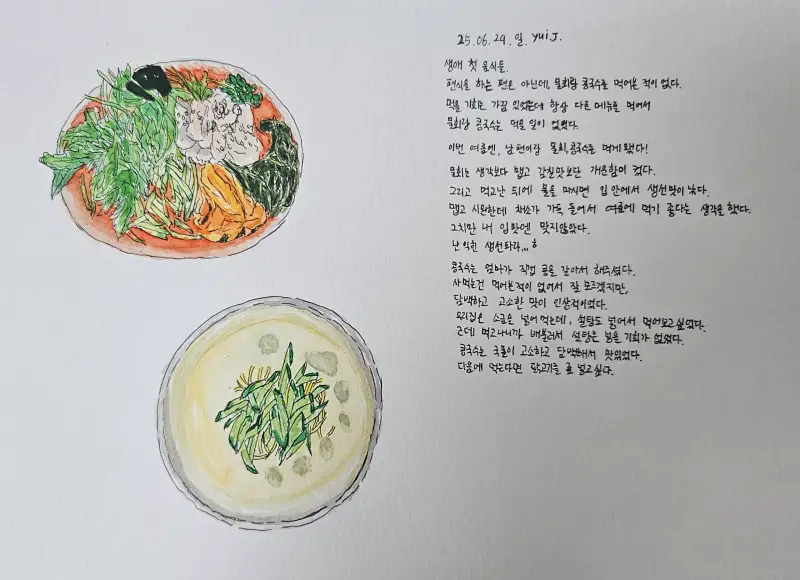 25.06.29.일. yui J.
생애 첫 음식들.
편식을 하는 편은 아닌데, 물회랑 콩국수를 먹어본 적이 없다.
먹을 기회는 가끔 있었는데 항상 다른 메뉴를 먹어서
물회랑 콩국수는 먹을 일이 없었다.
이번 여름엔, 남편이랑 물회, 콩국수를 먹게 됐다!
물회는 생각보다 맵고 감칠맛보단 개운함이 컸다.
그리고 먹고난 뒤에 물을 마시면 입 안에서 생선맛이 났다.
맵고 시원한데 채소가 가득 들어서 여름에 먹기 좋다는 생각을 했다.
그치만 내 입맛엔 맞지않았다.
난 익힌 생선파라...ㅎ
콩국수는 엄마가 직접 콩을 갈아서 해주셨다.
사먹는건 먹어본적이 없어서 잘 모르겠지만,
담백하고 고소한 맛이 인상적이였다.
우리집은 소금을 넣어 먹는데, 설탕도 넣어서 먹어보고 싶었다.
근데 먹고나니까 배불러서 설탕은 넣을 기회가 없었다.
콩국수는 국물이 고소하고 담백해서 맛있었다.
다음에 먹는다면 닭고기를 꼭 넣고싶다.